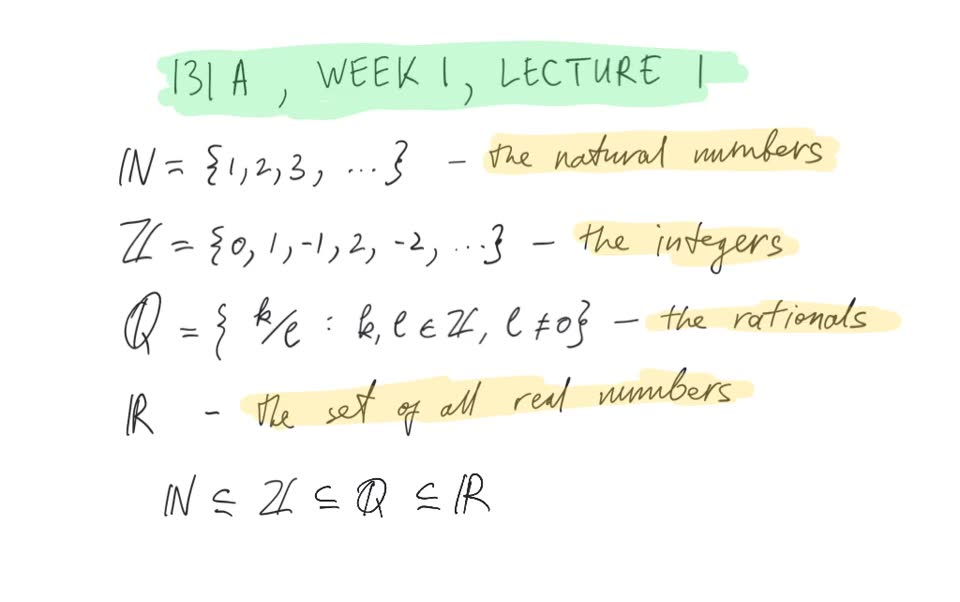 131A, WEEK 1, LECTURE 1
ℕ = {1,2,3, ...} – the natural numbers
ℤ = {0, 1, -1, 2, -2, ...} – the integers
ℚ = { k/ℓ : k, ℓ ∈ ℤ, ℓ ≠ 0} – the rationals
ℝ – the set of all real numbers
ℕ ⊆ ℤ ⊆ ℚ ⊆ ℝ